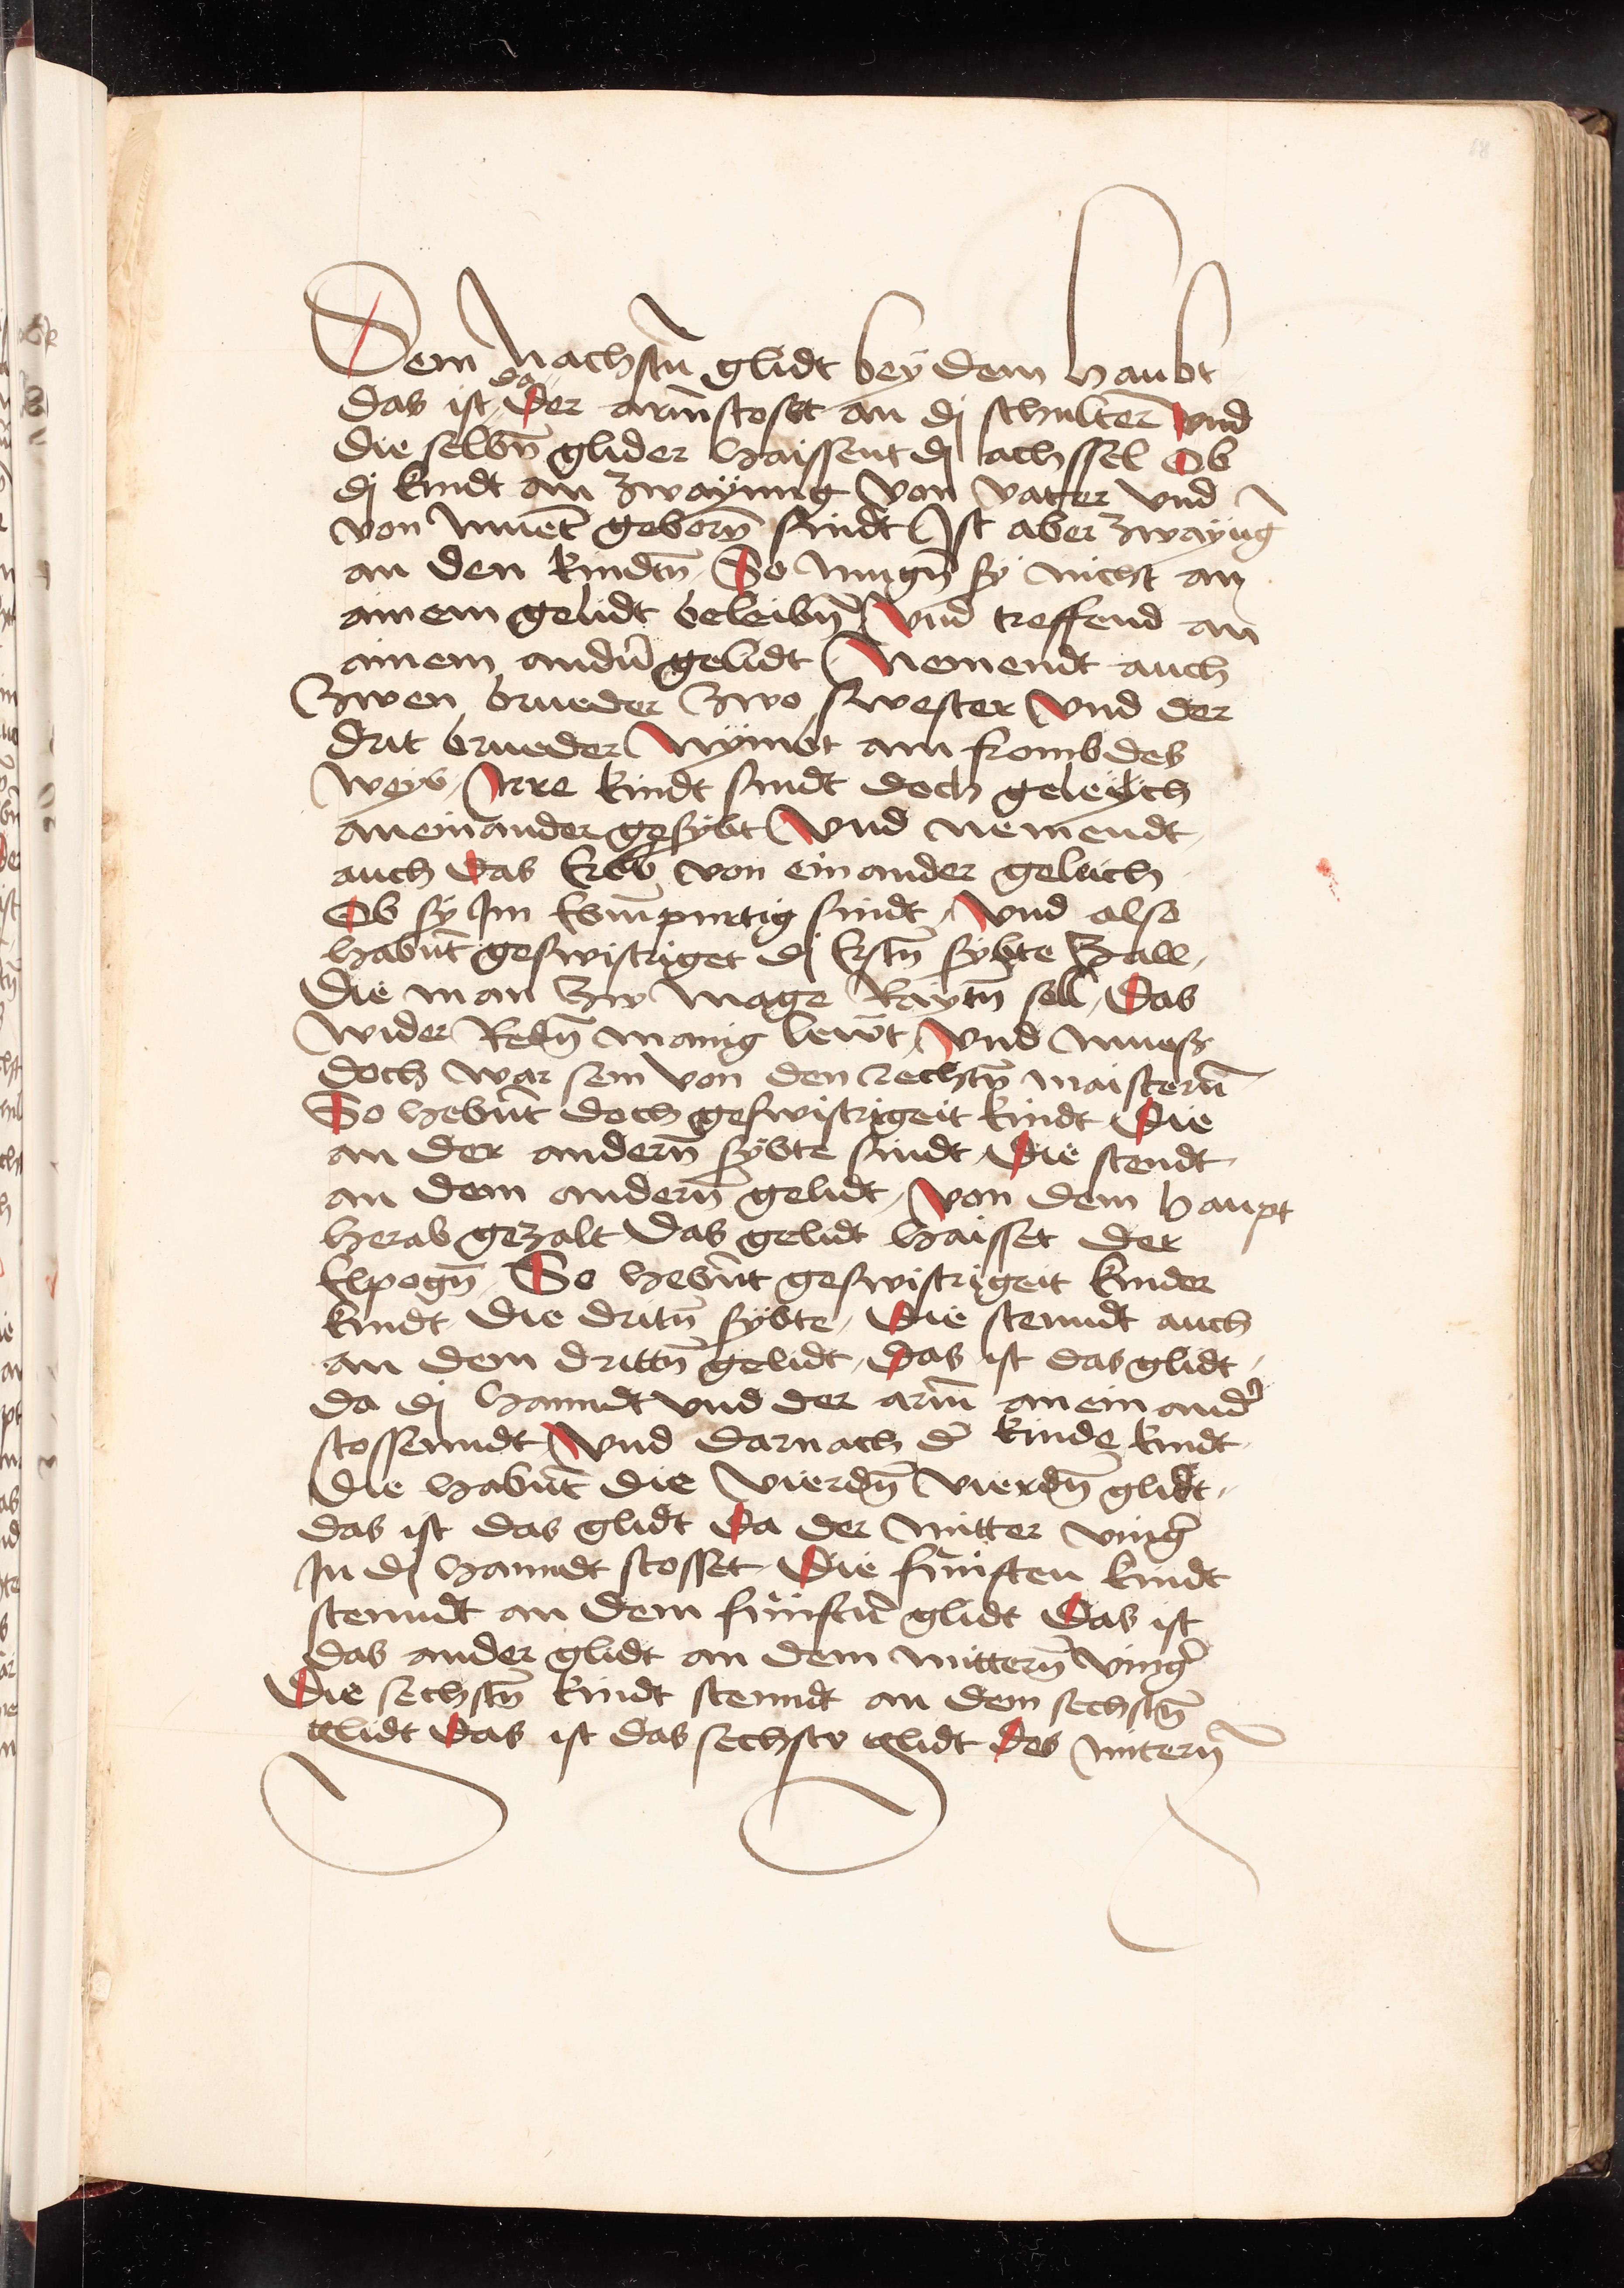 68
Dem Nachstn̄ glidt bey dem haubt
das ist da Der arm̄ stosst an dj schulter̄ Vnd
die selbn̄ glider haissent dj achssel Ob
dj kindt an zwayung von vatter vnd
von muet̄ geborn̄ sindt Ist aber zwayūg
an den kindtn̄ So mugn̄ sy nicht an
ainem gelidt beleibn̄ Vnd treffend an
ainem andn̄ gelidt Nemendt auch
Zwen brueder Zwo swester Vnd der
drit brueder Nymbt ain frombdes
Weyb Irre kindt sindt doch geleylich
aneinander gesybt Vnd nemendt
auch Das Erbb von einander geleich
Ob sy Im Ebm̄purtig sindt Vnd also
habn̄t geswistriget dj Erstn̄ sybte Zall
Die man Zw mage Raytn̄ soll Das
Wider Redn̄ manig lewt̄ Vnd muess
doch war sein von den rechtn̄ maistern̄
So hebn̄t doch geswistrigeit kindt Die
an der andern̄ sybte sindt Die stendt
an dem andern̄ gelidt Von dem haupt
herab gezalt Das gelidt haisset der
Elpogn̄ So hebn̄t geswistrigeit kinder
kindt die dritn̄ sybte Die stenndt auch
an dem drittn̄ gelidt Das ist das glidt
da dj hanndt vnd der arm̄ an ein ander̄
stossenndt Vnd darnach d̄ kinde kindt
Die habn̄t die Vierdn̄ Vierdn̄ glidt
das ist das glidt Da der mitter vinḡ
In dj hanndt stosset Die funften kindt
stenndt an dem funftn̄ glidt Das ist
das ander glidt an dem mittern̄ vinḡ
Die sechstn̄ kindt stenndt an dem sechstn̄
glidt Das ist das sechste glidt Des mitern̄